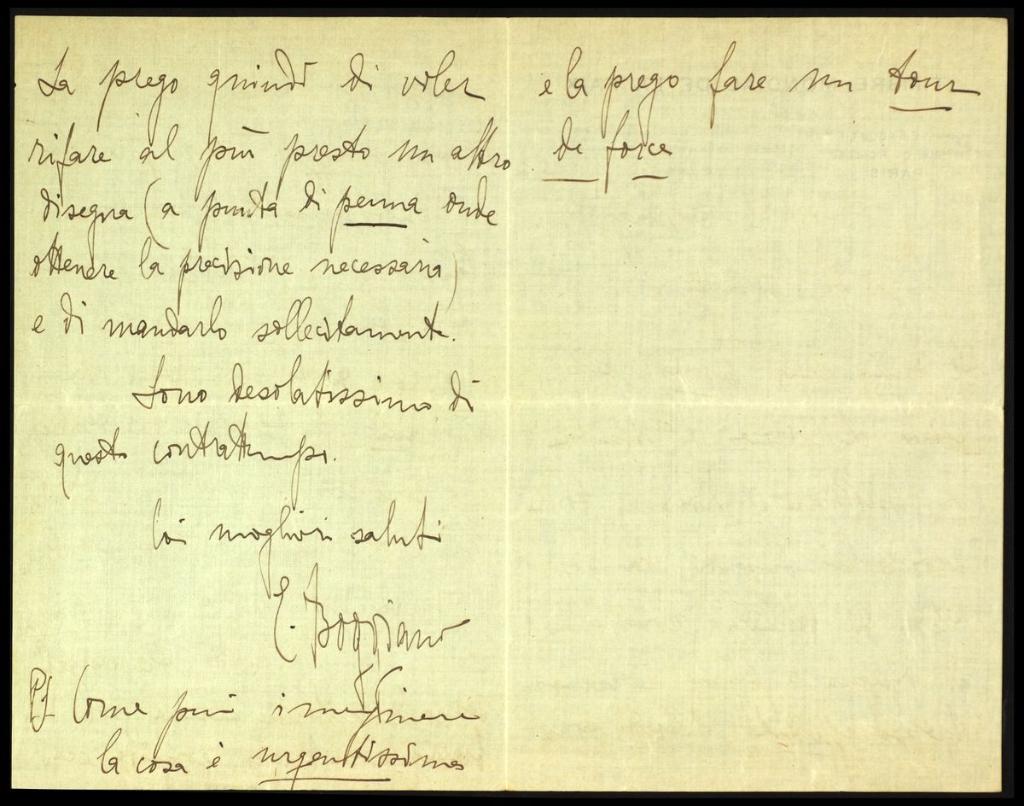 La prego quindi di voler
rifare al più presto un altro
disegna (a punta di penna onde
ottenere la precisione necessaria)
e di mandarlo sollecitamente.
Sono desolatissimo di
questo contrattempo.
Coi migliori saluti
E. Boggiano
PS Come può imaginare
la cosa è urgentissima
e la prego fare un tour
de force